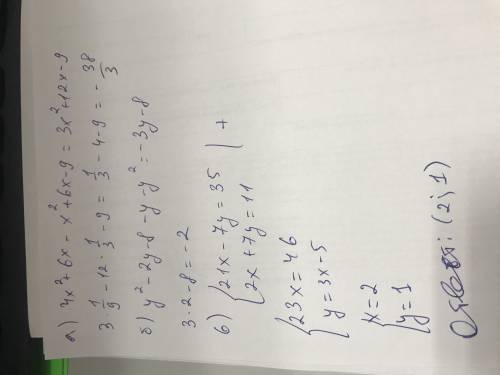 а) 4x² + 6x - x² + 6x - 9 = 3x² + 12x - 9
3 · 1/9 - 12 · 1/3 - 9 = 1/3 - 4 - 9 = - 38/3
б) y² - 2y - 8 - y - y² = - 3y - 8
3 · 2 - 8 = - 2
в) { 21x - 7y = 35 | +
{ 2x + 7y = 11
{ 23x = 46
{ y = 3x - 5
{ x = 2
{ y = 1
Ответ: (2; 1)